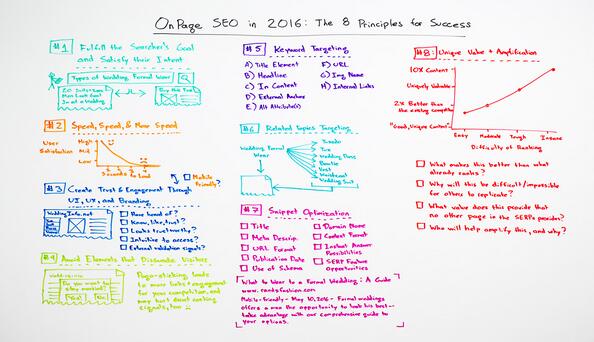 OnPage SEO in 2016: The 8 Principles for Success
#1 Fulfill the Searcher's Goal
and Satisfy their Intent
Types of Wedding Formal Wear
Buy this Tux!
#2 Speed, Speed, & More Speed
User
Satisfaction
High
Mid
Low
Seconds to Load
Mobile
Friendly?
#3 Create Trust & Engagement Through
UI, UX, and Branding
WeddingInfo.net
Have heard of?
Know, like, trust?
Looks trustworthy?
Intuitive to access?
External validation signals?
#4 Avoid Elements that Dissuade Visitors
Do you want to
stay married?
Yes!
No!
Pogo-sticking leads
to more links + engagement
for your competitors, and
may hurt direct ranking
signals, too
#5 Keyword Targeting
A) Title Element
B) Headline
C) In Content
D) External Anchors
E) Alt Attribute(s)
F) URL
G) Img Name
H) Internal Links
#6 Related Topics Targeting
Wedding Formal
Wear
Tuxedo
Tie
Wedding Dress
Bowtie
Vest
Waistcoat
Wedding Suit
#7 Snippet Optimization
Title
Meta Descrip.
URL Format
Publication Date
Use of Schema
Domain Name
Content Format
Instant Answer
Possibilities
SERP Feature
Opportunities
What to Wear to a Formal Wedding: A Guide
www.randsfashion.com
Mobile-friendly - May 10, 2016 - Formal weddings
offers a man the opportunity to look his best -
take advantage with our comprehensive guide to
your options.
#8: Unique Value + Amplification
10X Content
Uniquely Valuable
2X Better than
the existing
"Good, Unique Content"
Easy
Moderate
Tough
Insane
Difficulty of Ranking
What makes this better than what
already ranks?
Why will this be difficult/impossible
for others to replicate?
What value does this provide that
no other page in the SERPs provides?
Who will help amplify this, and why?